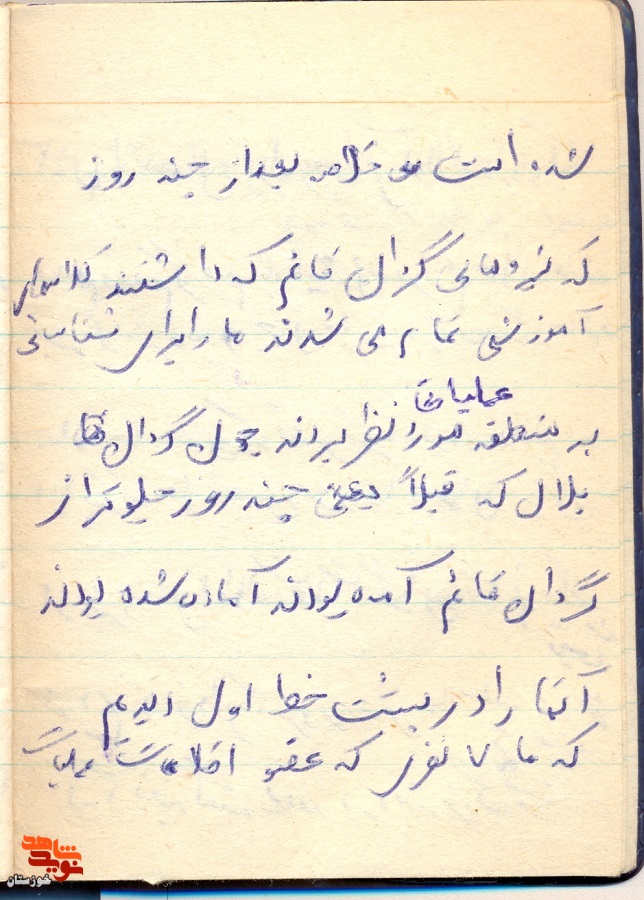 شده است خلاصه بعداز چند روز
که نیروهای گردان قائم که داشتند کلاسهای
آموزشی تمام می شدند ما را برای شناسایی
عملیات
به منطقه مورد نظر بردند چون گردان
بلال که قبلاً یعنی چند روز جلوتر از
گردان قائم آمده بودند آماده شده بودند
آنها را در پشت خط اول دیدیم
که ما ۷ نفر که عضو اطلاعات عملیات
شاهد
نوید
خوزستان